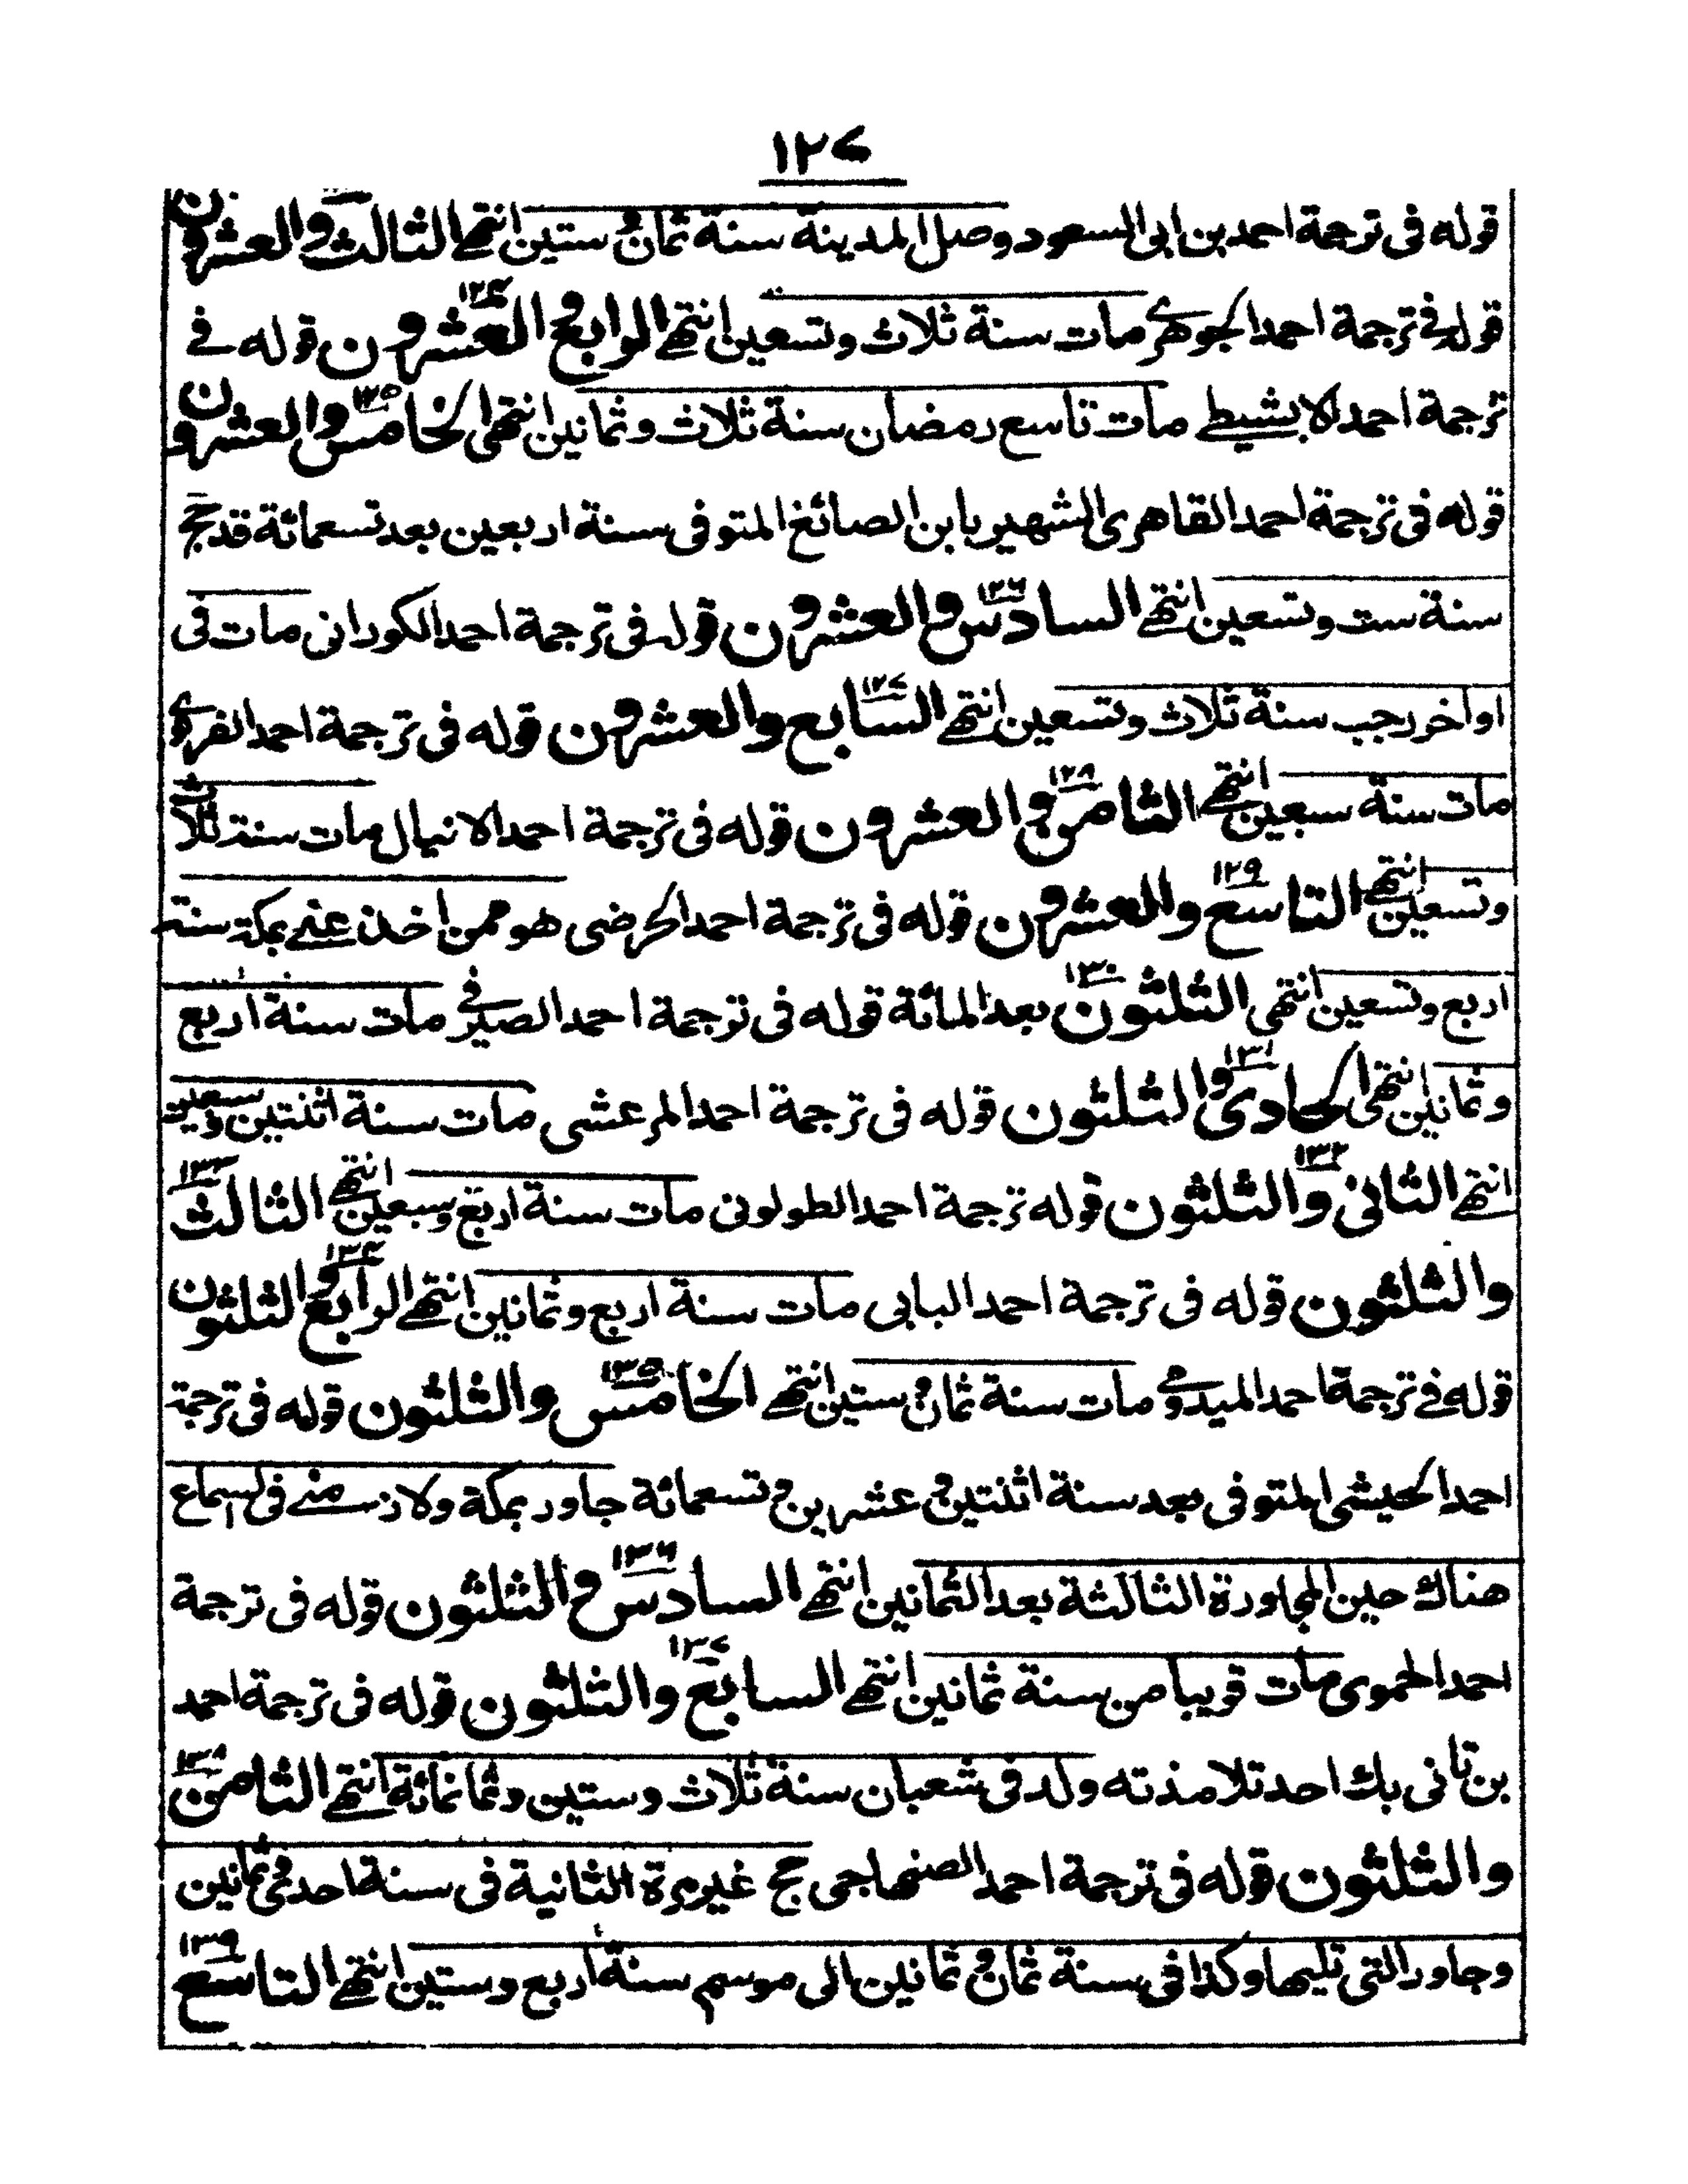 ١٢٧
قوله فى ترجمة احمد بن ابى السعود وصل المدينة سنة ثمان وستين انتهے الثالث والعشرون
قوله فے ترجمة احمد الجوهرے مات سنة ثلاث وتسعين انتهے الرابع ١٢٤ والعشرون قوله فے
ترجمة احمد الابشيطے مات تاسع رمضان سنة ثلاث وثمانين انتهى الخامس ١٢٥ والعشرون
قوله فى ترجمة احمد القاهرى الشهير بابن الصائغ المتوفى سنة اربعين بعد تسعمائة قد حج
سنة ست وتسعين انتهے السادس ١٢٦ والعشرون قوله فى ترجمة احمد الكورانى مات فى
اواخر رجب سنة ثلاث وتسعين انتهے السابع ١٢٧ والعشرون قوله فى ترجمة احمد
مات سنة سبعين انتهے الثامن ١٢٨ والعشرون قوله فى ترجمة احمد الانيال مات سنة ثلاث
وتسعين انتهے التاسع ١٢٩ والعشرون قوله فى ترجمة احمد الحرضى هو ممن اخذ عنے بمكة سنة
اربع وتسعين انتهى الثلثون ١٣٠ بعد المائة قوله فى ترجمة احمد الصيرفے مات سنة اربع
وثمانين انتهى الحادى ١٣١ والثلثون قوله فى ترجمة احمد المرعشى مات سنة اثنتين وسبعين
انتهے الثانى ١٣٢ والثلثون قوله ترجمة احمد الطولونى مات سنة اربع وسبعين انتهے الثالث ١٣٣
والثلثون قوله فى ترجمة احمد البابى مات سنة اربع وثمانين انتهے الرابع ١٣٤ والثلثون
قوله فے ترجمة احمد الميدومے مات سنة ثمان وستين انتهے الخامس ١٣٥ والثلثون قوله فى ترجمة
احمد الحيشى المتوفى بعد سنة اثنتين وعشرين وتسعمائة جاور بمكة ولازمنے فى السماع
هناك حين المجاورة الثالثة بعد الثمانين انتهے السادس ١٣٦ والثلثون قوله فى ترجمة
احمد الحموى مات قريبا من سنة ثمانين انتهے السابع ١٣٧ والثلثون قوله فى ترجمة احمد
بن تانى بك احد تلامذته ولد فى شعبان سنة ثلاث وستين وثمانمائة انتهے الثامن ١٣٨
والثلثون قوله فى ترجمة احمد الصنهاجى حج غير مرة الثانية فى سنة احدى وثمانين
وجاور التى تليها وكذا فى سنة ثمان وثمانين الى موسم سنة اربع وستين انتهے التاسع ١٣٩